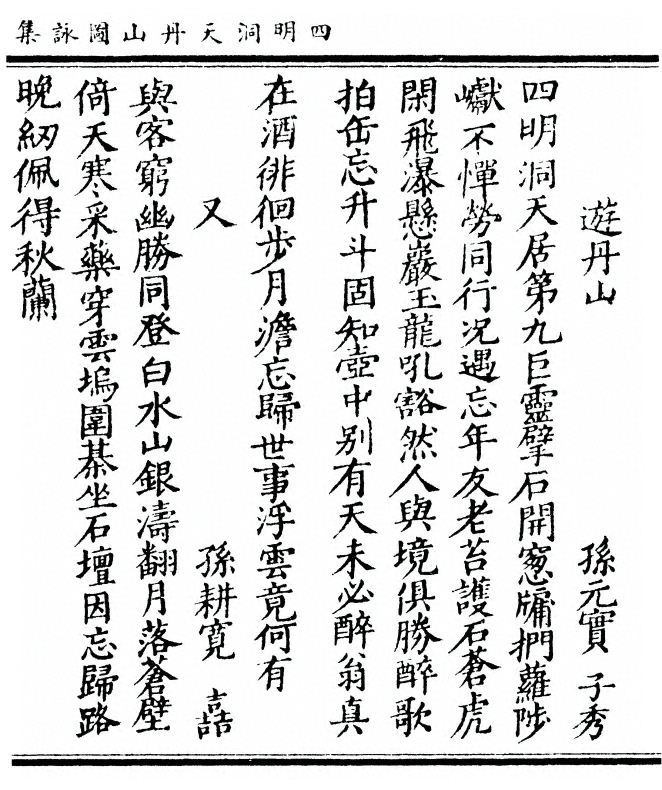 四明洞天丹山圖詠集
遊丹山 孫元實 子秀
四明洞天居第九巨靈擘石開窻牖捫蘿陟
巘不憚勞同行况遇忘年友老苔護石蒼虎
閑飛瀑懸巖玉龍吼豁然人與境俱勝醉歌
拍缶忘升斗固知壺中别有天未必醉翁真
在酒徘徊步月澹忘歸世事浮雲竟何有
又 孫耕寬 嚞
與客窮幽勝同登白水山銀濤翻月落蒼壁
倚天寒采藥穿雲塢圍棊坐石壇因忘歸路
晚紉佩得秋蘭